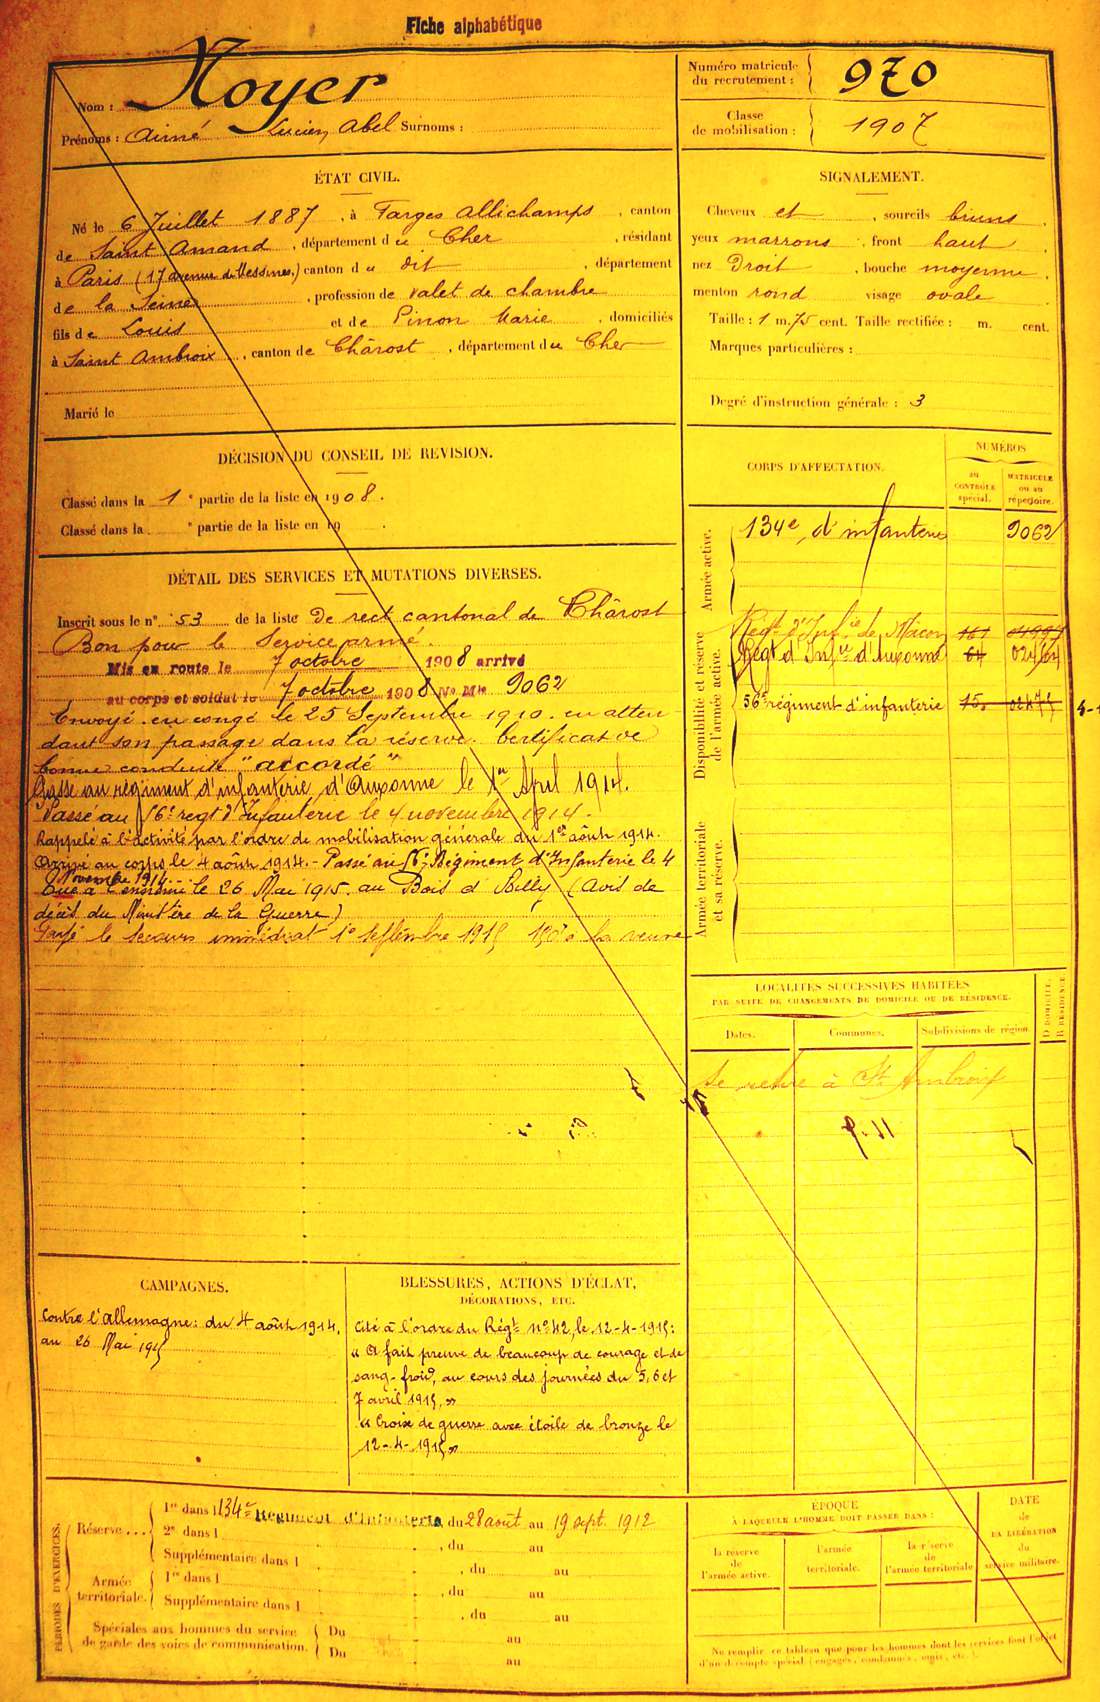 Fiche alphabétique
Nom : Noyer
Prénoms : Aimé Lucien Abel Surnoms :
Numéro matricule du recrutement : 970
Classe de mobilisation : 1907
ÉTAT CIVIL.
Né le 6 Juillet 1887, à Farges Allichamps, canton
de Saint Amand, département du Cher, résidant
à Paris (17 avenue de Messines,) canton du dit, département
de la Seine, profession de valet de chambre
fils de Louis et de Pinon Marie, domiciliés
à Saint Ambroix, canton de Chârost, département du Cher
Marié le
SIGNALEMENT.
Cheveux et, sourcils bruns.
yeux marrons, front haut
nez Droit, bouche moyenne.
menton rond visage ovale
Taille : 1 m. 75 cent. Taille rectifiée : m. cent.
Marques particulières :
Degré d'instruction générale : 3
DÉCISION DU CONSEIL DE REVISION.
Classé dans la 1e partie de la liste en 1908.
Classé dans la e partie de la liste en 19 .
DÉTAIL DES SERVICES ET MUTATIONS DIVERSES.
Inscrit sous le n° 53 de la liste De rect cantonal de Chârost
Bon pour le Service armé
Mis en route le 7 octobre 1908 arrivé
au corps et soldat le 7 octobre 1908 No Mle 9062
Envoyé en congé le 25 Septembre 1910 en atten-
dant son passage dans la réserve. Certificat de
bonne conduite "accordé"
Passé au régiment d'infanterie d'Auxonne le 1er April 1914.
Passé au 56e regt d'Infanterie le 4 novembre 1914.
Rappelé à l'activité par l'ordre de mobilisation générale du 1er août 1914.
Arrivé au corps le 4 août 1914. - Passé au 56e Régiment d'Infanterie le 4
Novembre 1914
Tué à l'ennemi le 26 Mai 1915. au Bois d'Ailly (Avis de
décès du Ministère de la Guerre)
Payé le secours immédiat 1er septembre 1915 150f à la veuve
CORPS D'AFFECTATION.
NUMÉROS
au contrôle spécial.
MATRICULE ou au répertoire.
Armée active.
134e d'infanterie 9062
Disponibilité et réserve de l'armée active.
Régt d'Infie de Mâcon 161
Régt d'Infie d'Auxonne 64
56e régiment d'infanterie
Armée territoriale et sa réserve.
LOCALITÉS SUCCESSIVES HABITÉES
PAR SUITE DE CHANGEMENTS DE DOMICILE OU DE RÉSIDENCE.
Dates. Communes. Subdivisions de région
D DOMICILE. R RÉSIDENCE
se retire à St Ambroix
CAMPAGNES.
Contre l'allemagne : du 4 août 1914.
au 26 Mai 1915
BLESSURES, ACTIONS D'ÉCLAT,
DÉCORATIONS, ETC.
Cité à l'ordre du Régt no 42, le 12-4-1915 :
« A fait preuve de beaucoup de courage et de
sang-froid, au cours des journées du 5, 6 et
7 avril 1915, »
« Croix de guerre avec étoile de bronze le
12-4-1915 »
PÉRIODES D'EXERCICES.
Réserve...
1re dans l 134e Régiment d'Infanterie, du 28 août au 19 sept. 1912
2e dans l , du au
Supplémentaire dans l , du au
Armée territoriale.
1re dans l , du au
Supplémentaire dans l , du au
Spéciales aux hommes du service de garde des voies de communication.
Du au
Du au
ÉPOQUE
À LAQUELLE L'HOMME DOIT PASSER DANS :
la réserve de l'armée active.
l'armée territoriale.
la réserve de l'armée territoriale
DATE de LA LIBÉRATION du service militaire.
Ne remplir ce tableau que pour les hommes dont les services font l'objet
d'un décompte spécial (engagés, condamnés, omis, etc.).